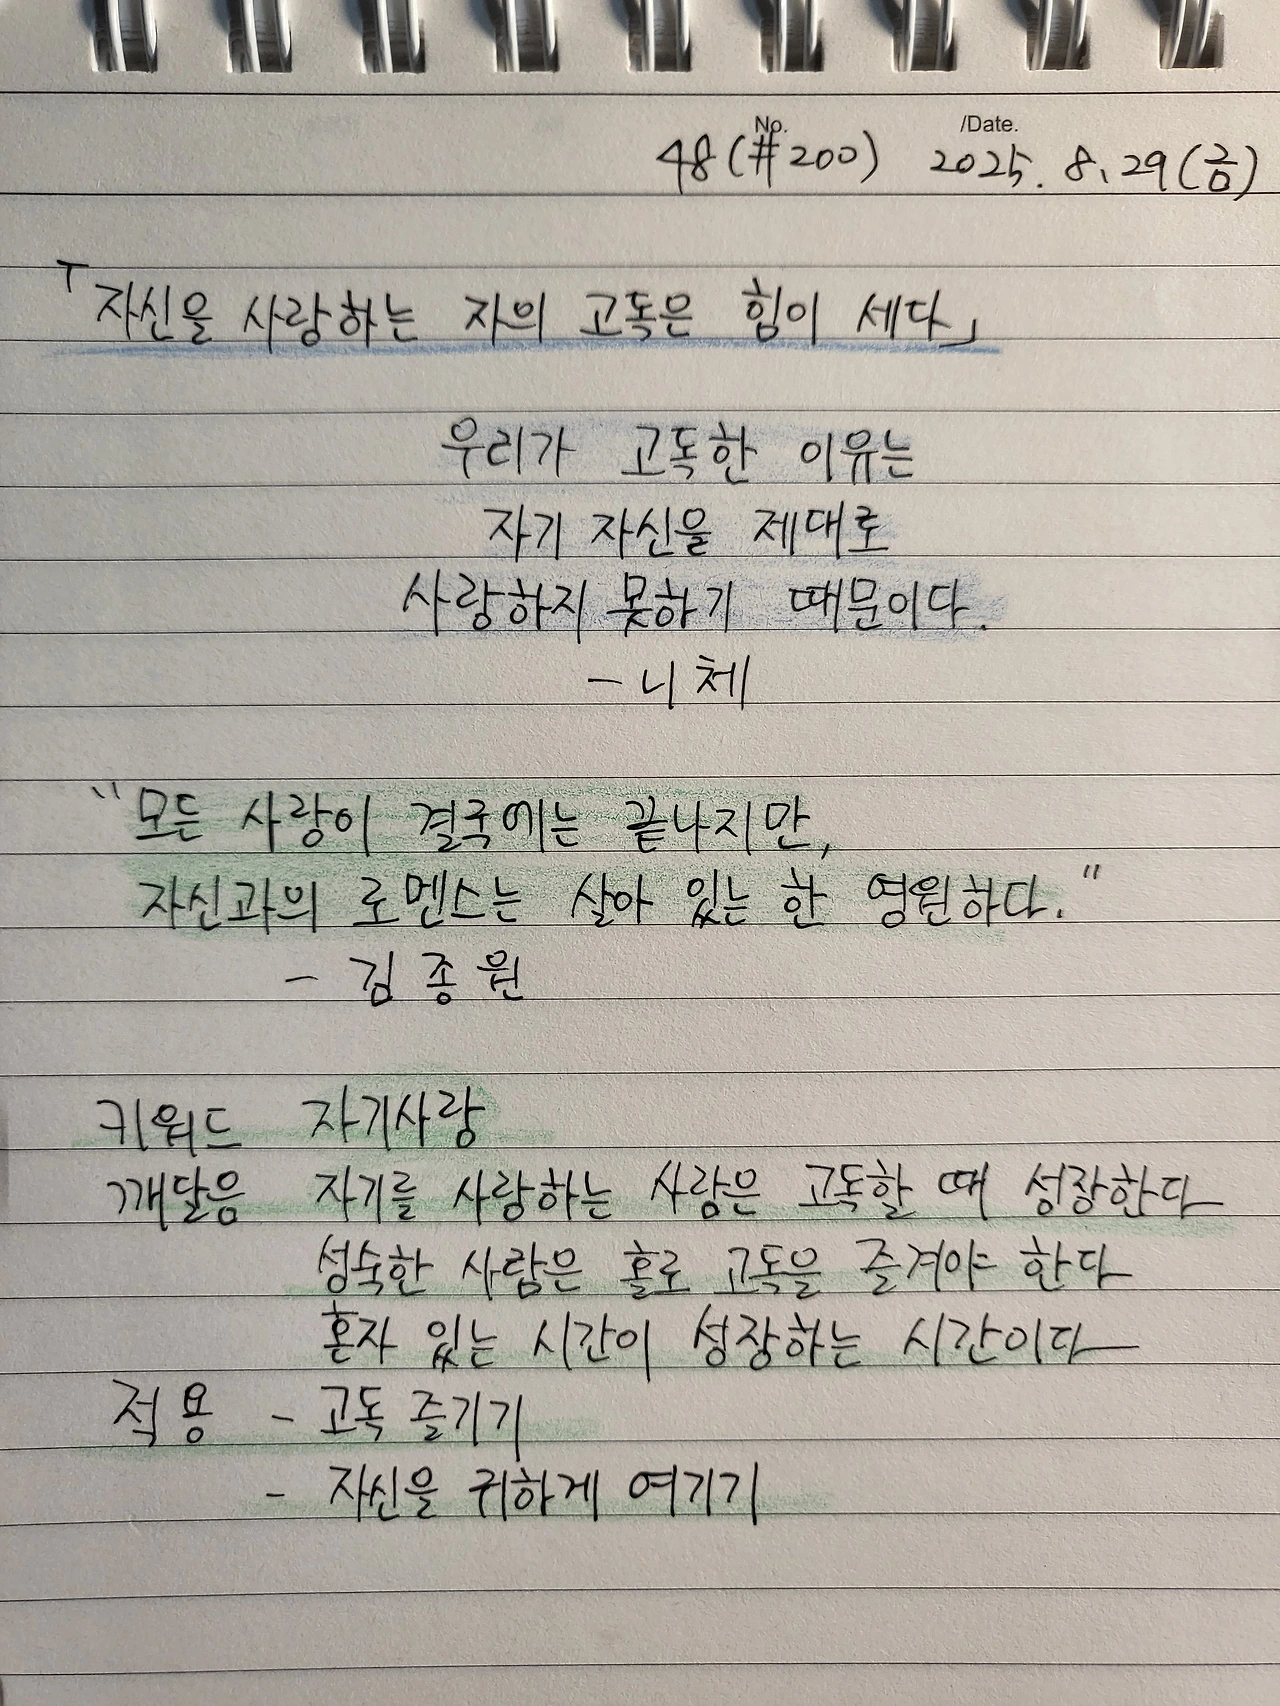 No. /Date.
48(#200) 2025. 8. 29(금)
「자신을 사랑하는 자의 고독은 힘이 세다」
우리가 고독한 이유는
자기 자신을 제대로
사랑하지 못하기 때문이다.
- 니체
"모든 사랑이 결국에는 끝나지만,
자신과의 로멘스는 살아 있는 한 영원하다."
- 김종원
키워드 자기사랑
깨달음 자기를 사랑하는 사람은 고독할 때 성장한다
성숙한 사람은 홀로 고독을 즐겨야 한다
혼자 있는 시간이 성장하는 시간이다
적용 - 고독 즐기기
- 자신을 귀하게 여기기